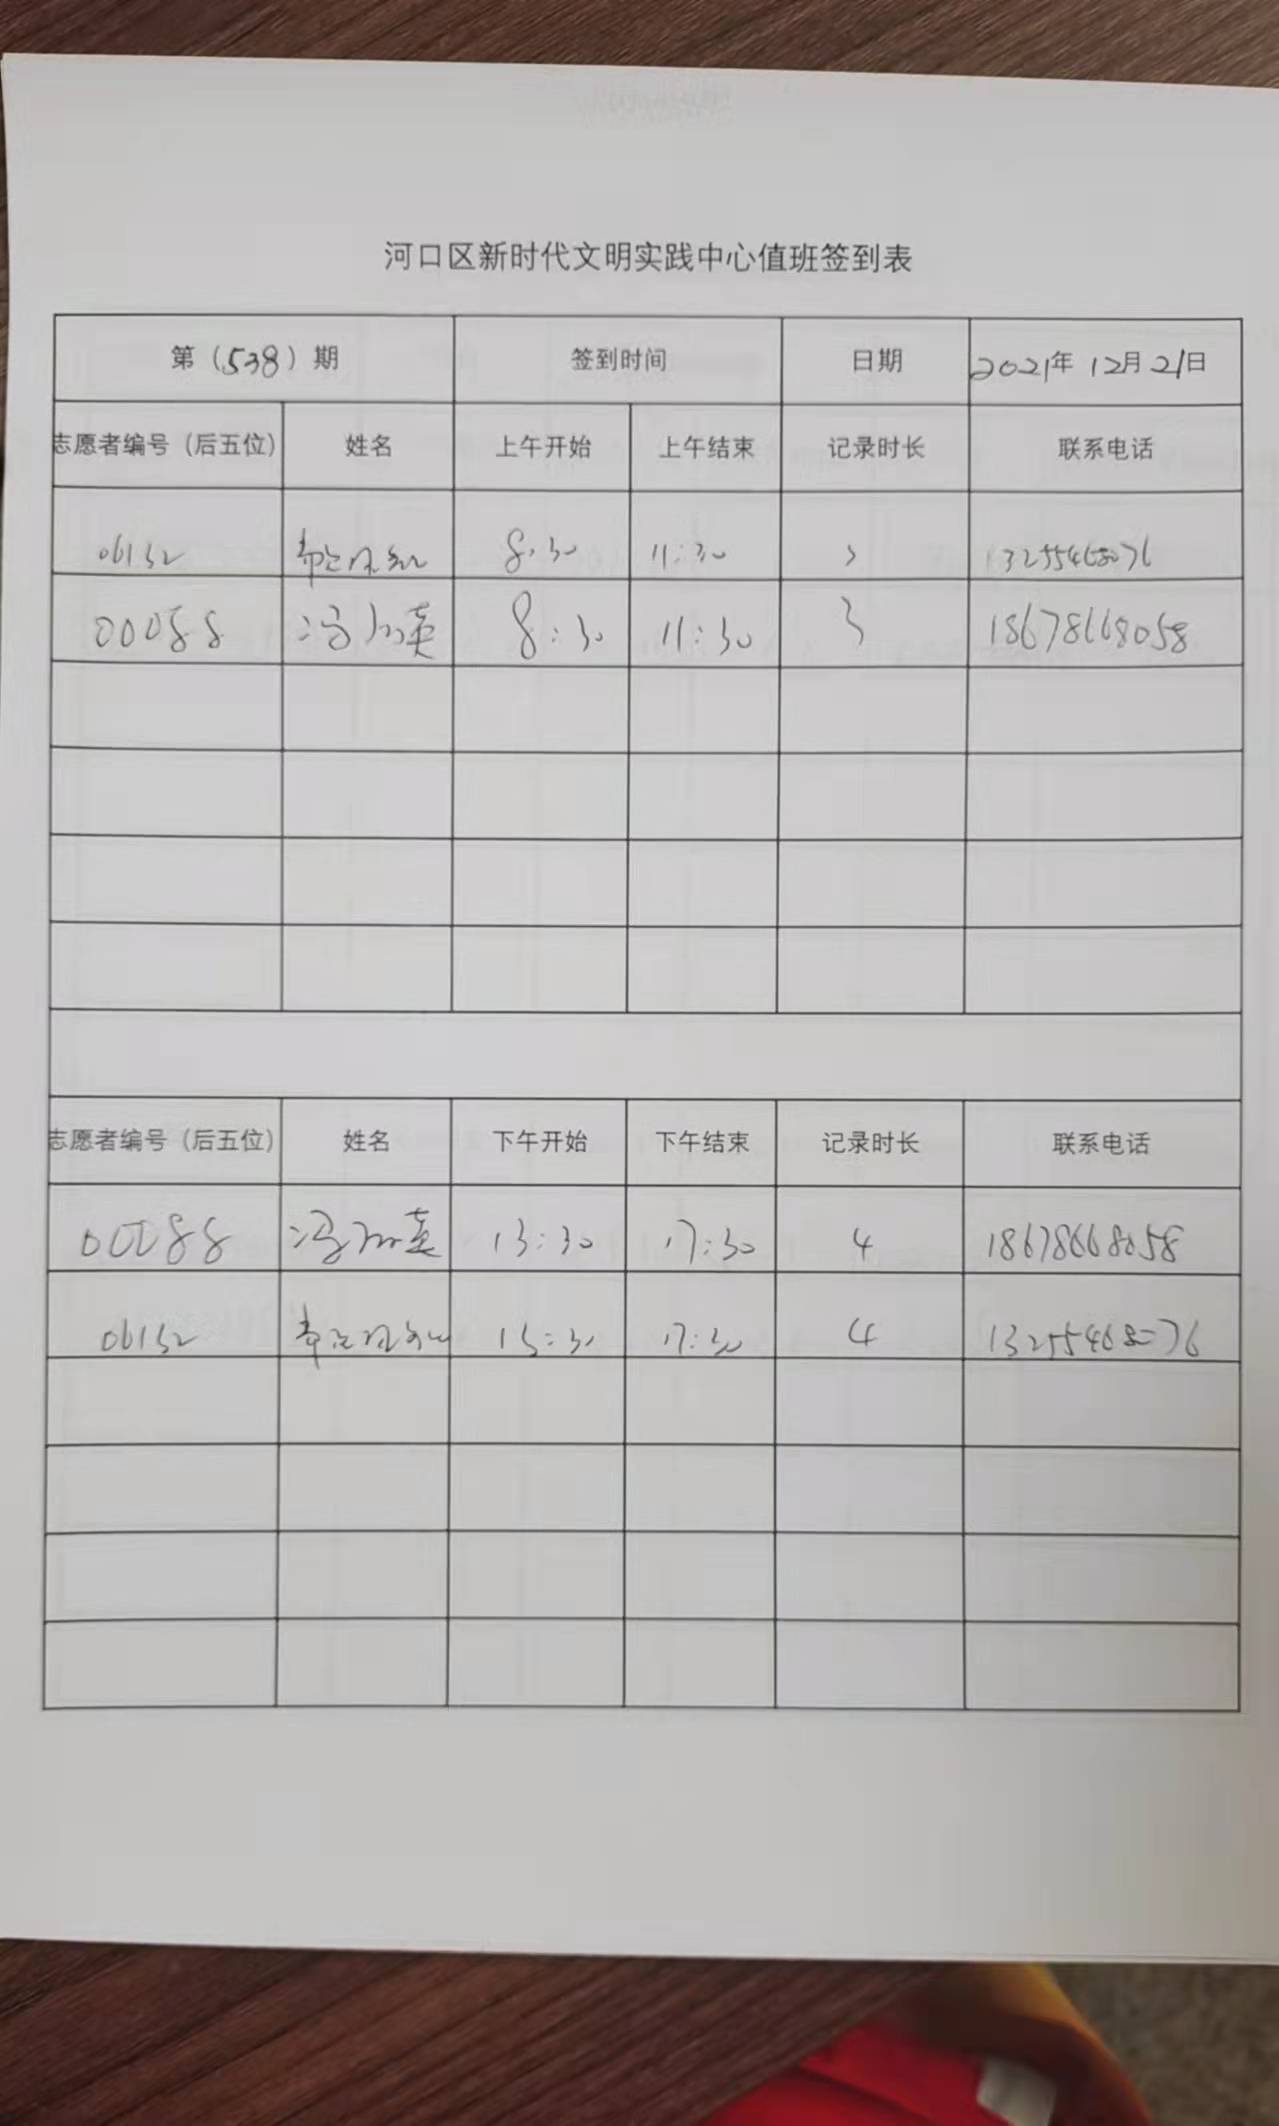 河口区新时代文明实践中心值班签到表
第（538）期 签到时间 日期 2021年 12月21日
志愿者编号（后五位） 姓名 上午开始 上午结束 记录时长 联系电话
06132 8:30 11:30 3 13255468076
00088 冯 英 8:30 11:30 3 18678668058
志愿者编号（后五位） 姓名 下午开始 下午结束 记录时长 联系电话
00088 冯 英 13:30 17:30 4 18678668058
06132 13:30 17:30 4 13255468076